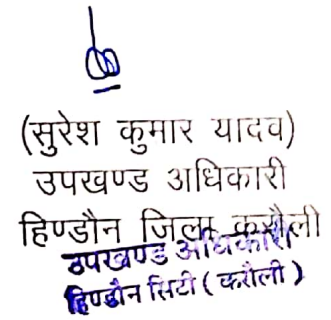 (सुरेश कुमार यादव)
उपखण्ड अधिकारी
हिण्डौन जिला करौली
उपखण्ड अधिकारी
हिण्डौन सिटी ( करौली )